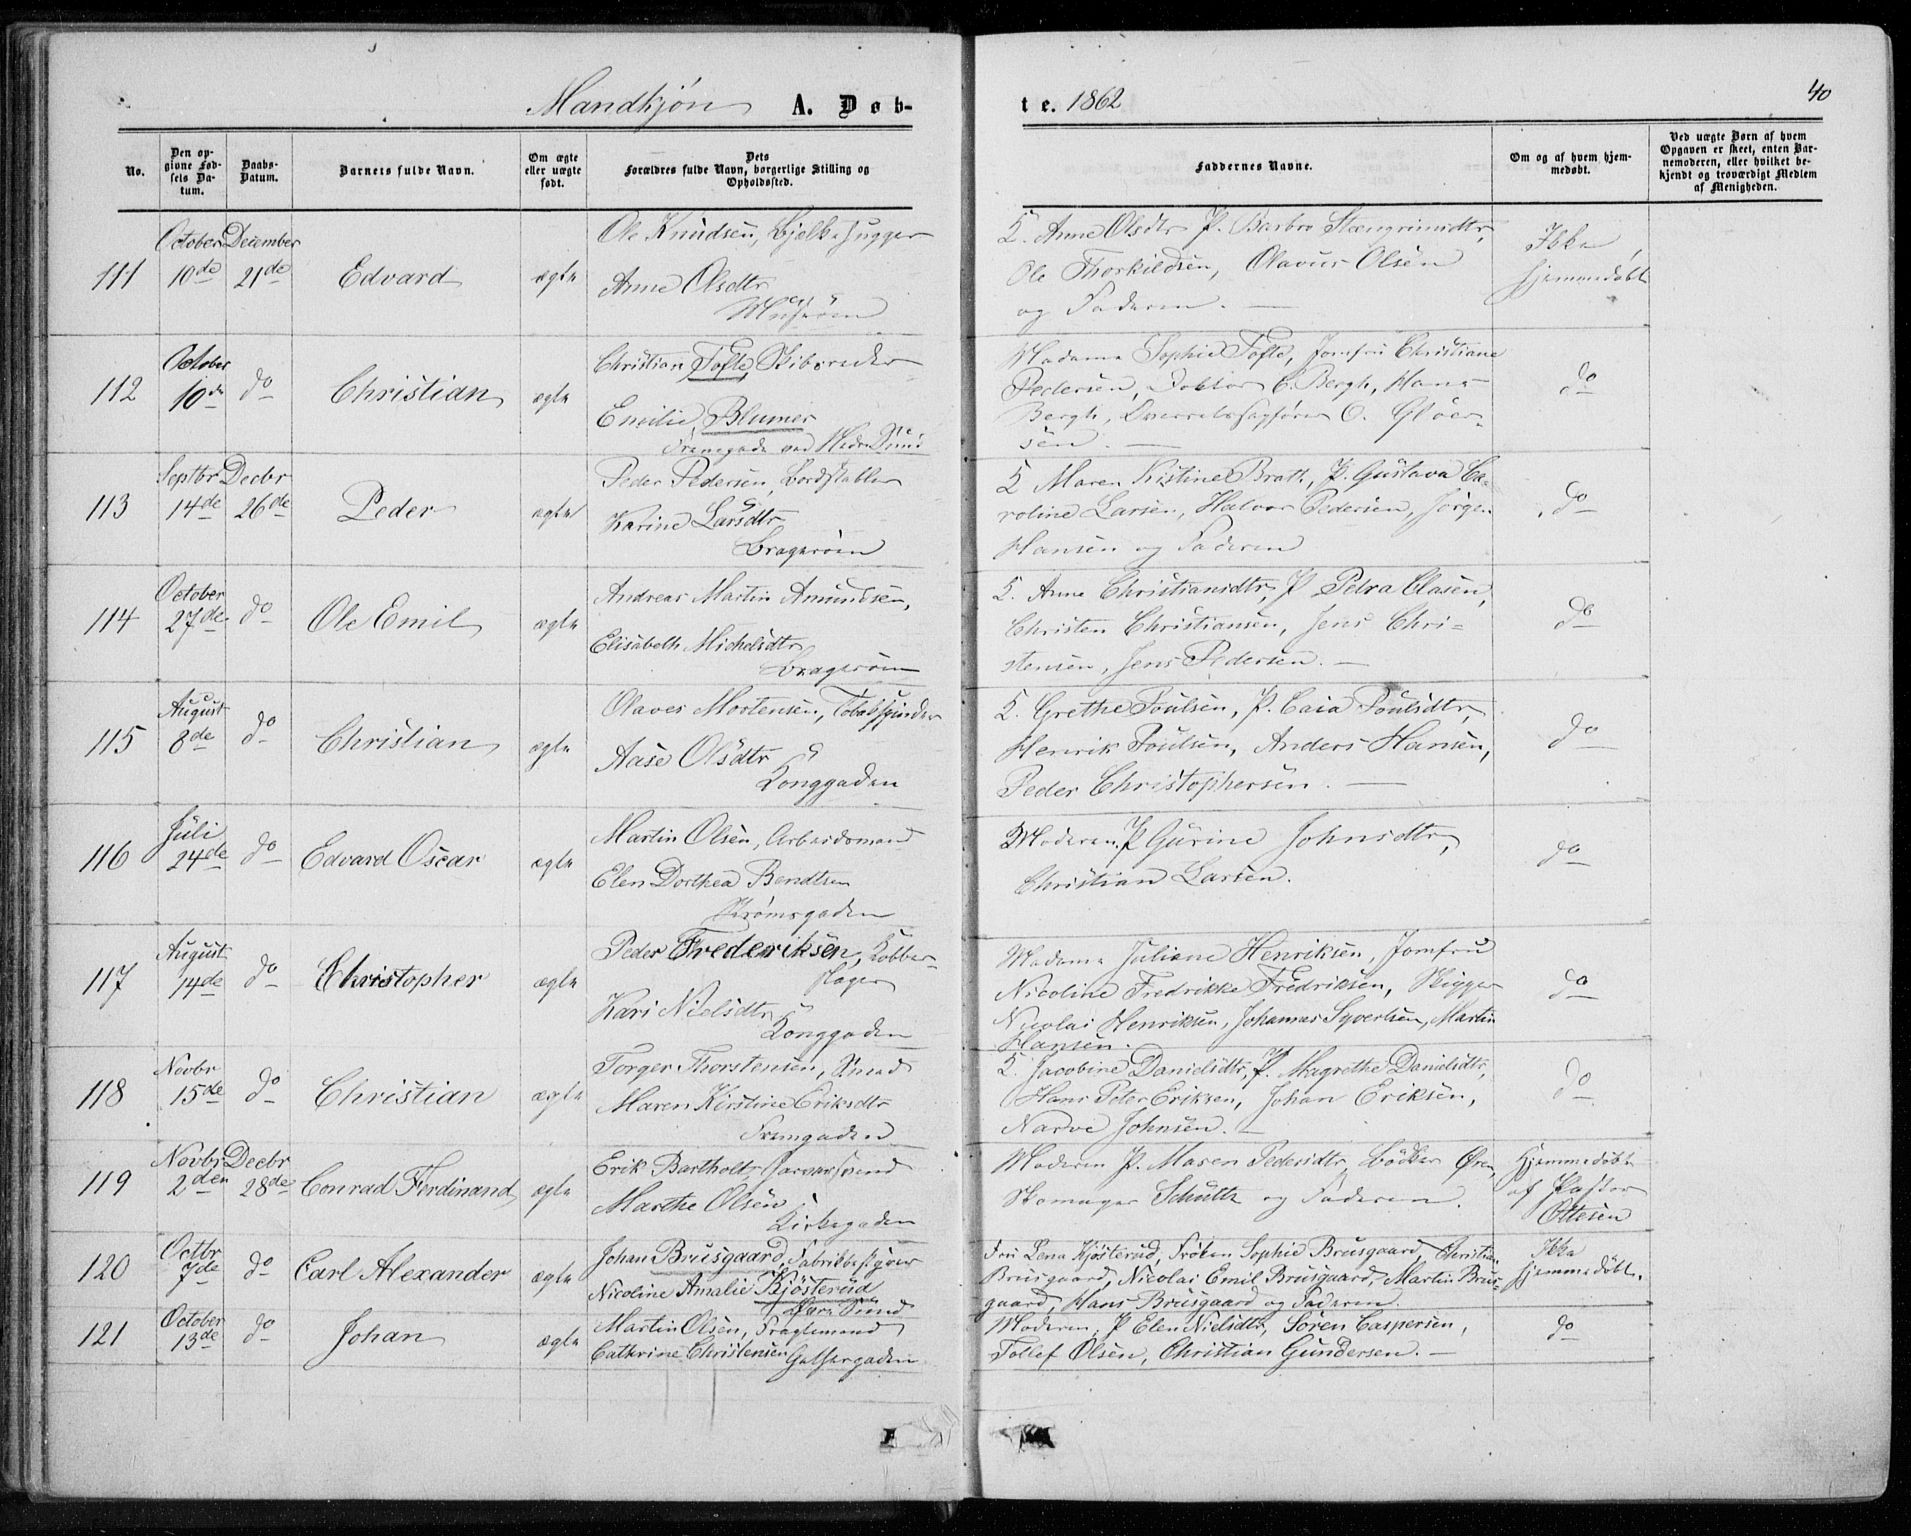 Mandkjøn A. Døb-
te. 1862
40
No.
Den op-
givne Fød-
sels Da-
tum.
Daabs-
Datum.
Barnets fulde Navn.
Om ægte
eller uægte
født.
Dets
Forældres fulde Navn, borgerlige Stilling og
Opholdssted.
Faddernes Navne.
Om og af hvem hjem-
medøbt.
Ved uægte Børn af hvem
Opgaven er skeet, enten Bar-
nemoderen, eller hvilket be-
kjendt og troværdigt Medlem
af Menigheden.
111 October 10de December 21de Edvard ægte
Ole Knudsen, Bjelkehugger
Anne Olsdtr
Q. Anne Olsdtr P. Barbro
Ole Thorkildsen, Olavus Olsen
og Faderen. —
Ikke
hjemmedøbt
112 October 10de do Christian ægte
Christian Tofte, Skibsreder
Emilie Blumer
Madame Sophie Tofte, Jomfru Christiane
Pedersen, Doktor C. Bergh, Hans
Bergh, Overretssagfører O. Gløer-
sen. —
do
113 Septbr 14de Decbr 26de Peder ægte
Peder Pedersen, Bordstabler
Karine Larsdtr
Bragerøen
Q Maren Kistine Bratt, P. Gustava Ca-
roline Larsen, Halvor Pedersen, Jørgen
Hansen og Faderen
do
114 October 27de do Ole Emil ægte
Andreas Martin Amundsen,
Elisabeth Michelsdtr
Bragerøen
Q. Anne Christiansdtr, P Petra Olasen,
Christen Christiansen, Jens Chri-
stensen, Jens Pedersen. —
do
115 August 8de do Christian ægte
Olaves Mortensen, Tobakspinder
Aase Olsdtr
Konggaden
Q. Grethe Poulsen, P. Caia Poulsdtr,
Henrik Poulsen, Anders Hansen,
Peder Christophersen. —
do
116 Juli 24de do Edvard Oscar ægte
Martin Olsen, Arbeidsmand
Elen Dorthea Bendtsen
Strømsgaden
Moderen, P Gurine Johnsdtr,
Christian Larsen.
do
117 August 14de do Christopher ægte
Peder Frederiksen, Kobber-
slager
Kari Nielsdtr
Konggaden
Madame Juliane Henriksen, Jomfru
Nicoline Fredrikke Fredriksen, Skipper
Nicolai Henriksen, Johannes Syvertsen, Martin
Hansen.
do
118 Novbr 15de do Christian ægte
Torger Thorstensen, Smed
Maren Kirstine Eriksdtr
Tremgaden
Q. Jacobine Danielsdtr, P. Magrethe Danielsdtr,
Hans Peter Eriksen, Johan Eriksen,
Narve Johnsen. —
do
119 Novbr 2den Decbr 28de Conrad Ferdinand ægte
Erik Bartholt, Garversvend
Marthe Olsen
Kirkegaden
Moderen P. Maren Pedersdtr, Bødker Øren,
Skomager Schultz og Faderen.
Hjemmedøbt
af Pastor
Ottesen
120 Octbr 7de do Carl Alexander ægte
Johan Brusgaard, Fabrikbestyrer
Nicoline Amalie Kjøsterud
Fru Lena Kjøsterud, Frøken Sophie Brusgaard, Christian
Brusgaard, Nicolai Emil Brusgaard, Martin Brus-
gaard, Hans Brusgaard og Faderen.
Ikke
hjemmedøbt.
121 October 13de do Johan ægte
Martin Olsen, Fragtemand
Cathrine Christensen
Moderen, P Elen Nielsdtr, Søren Caspersen,
Tollef Olsen, Christian Gundersen. —
do